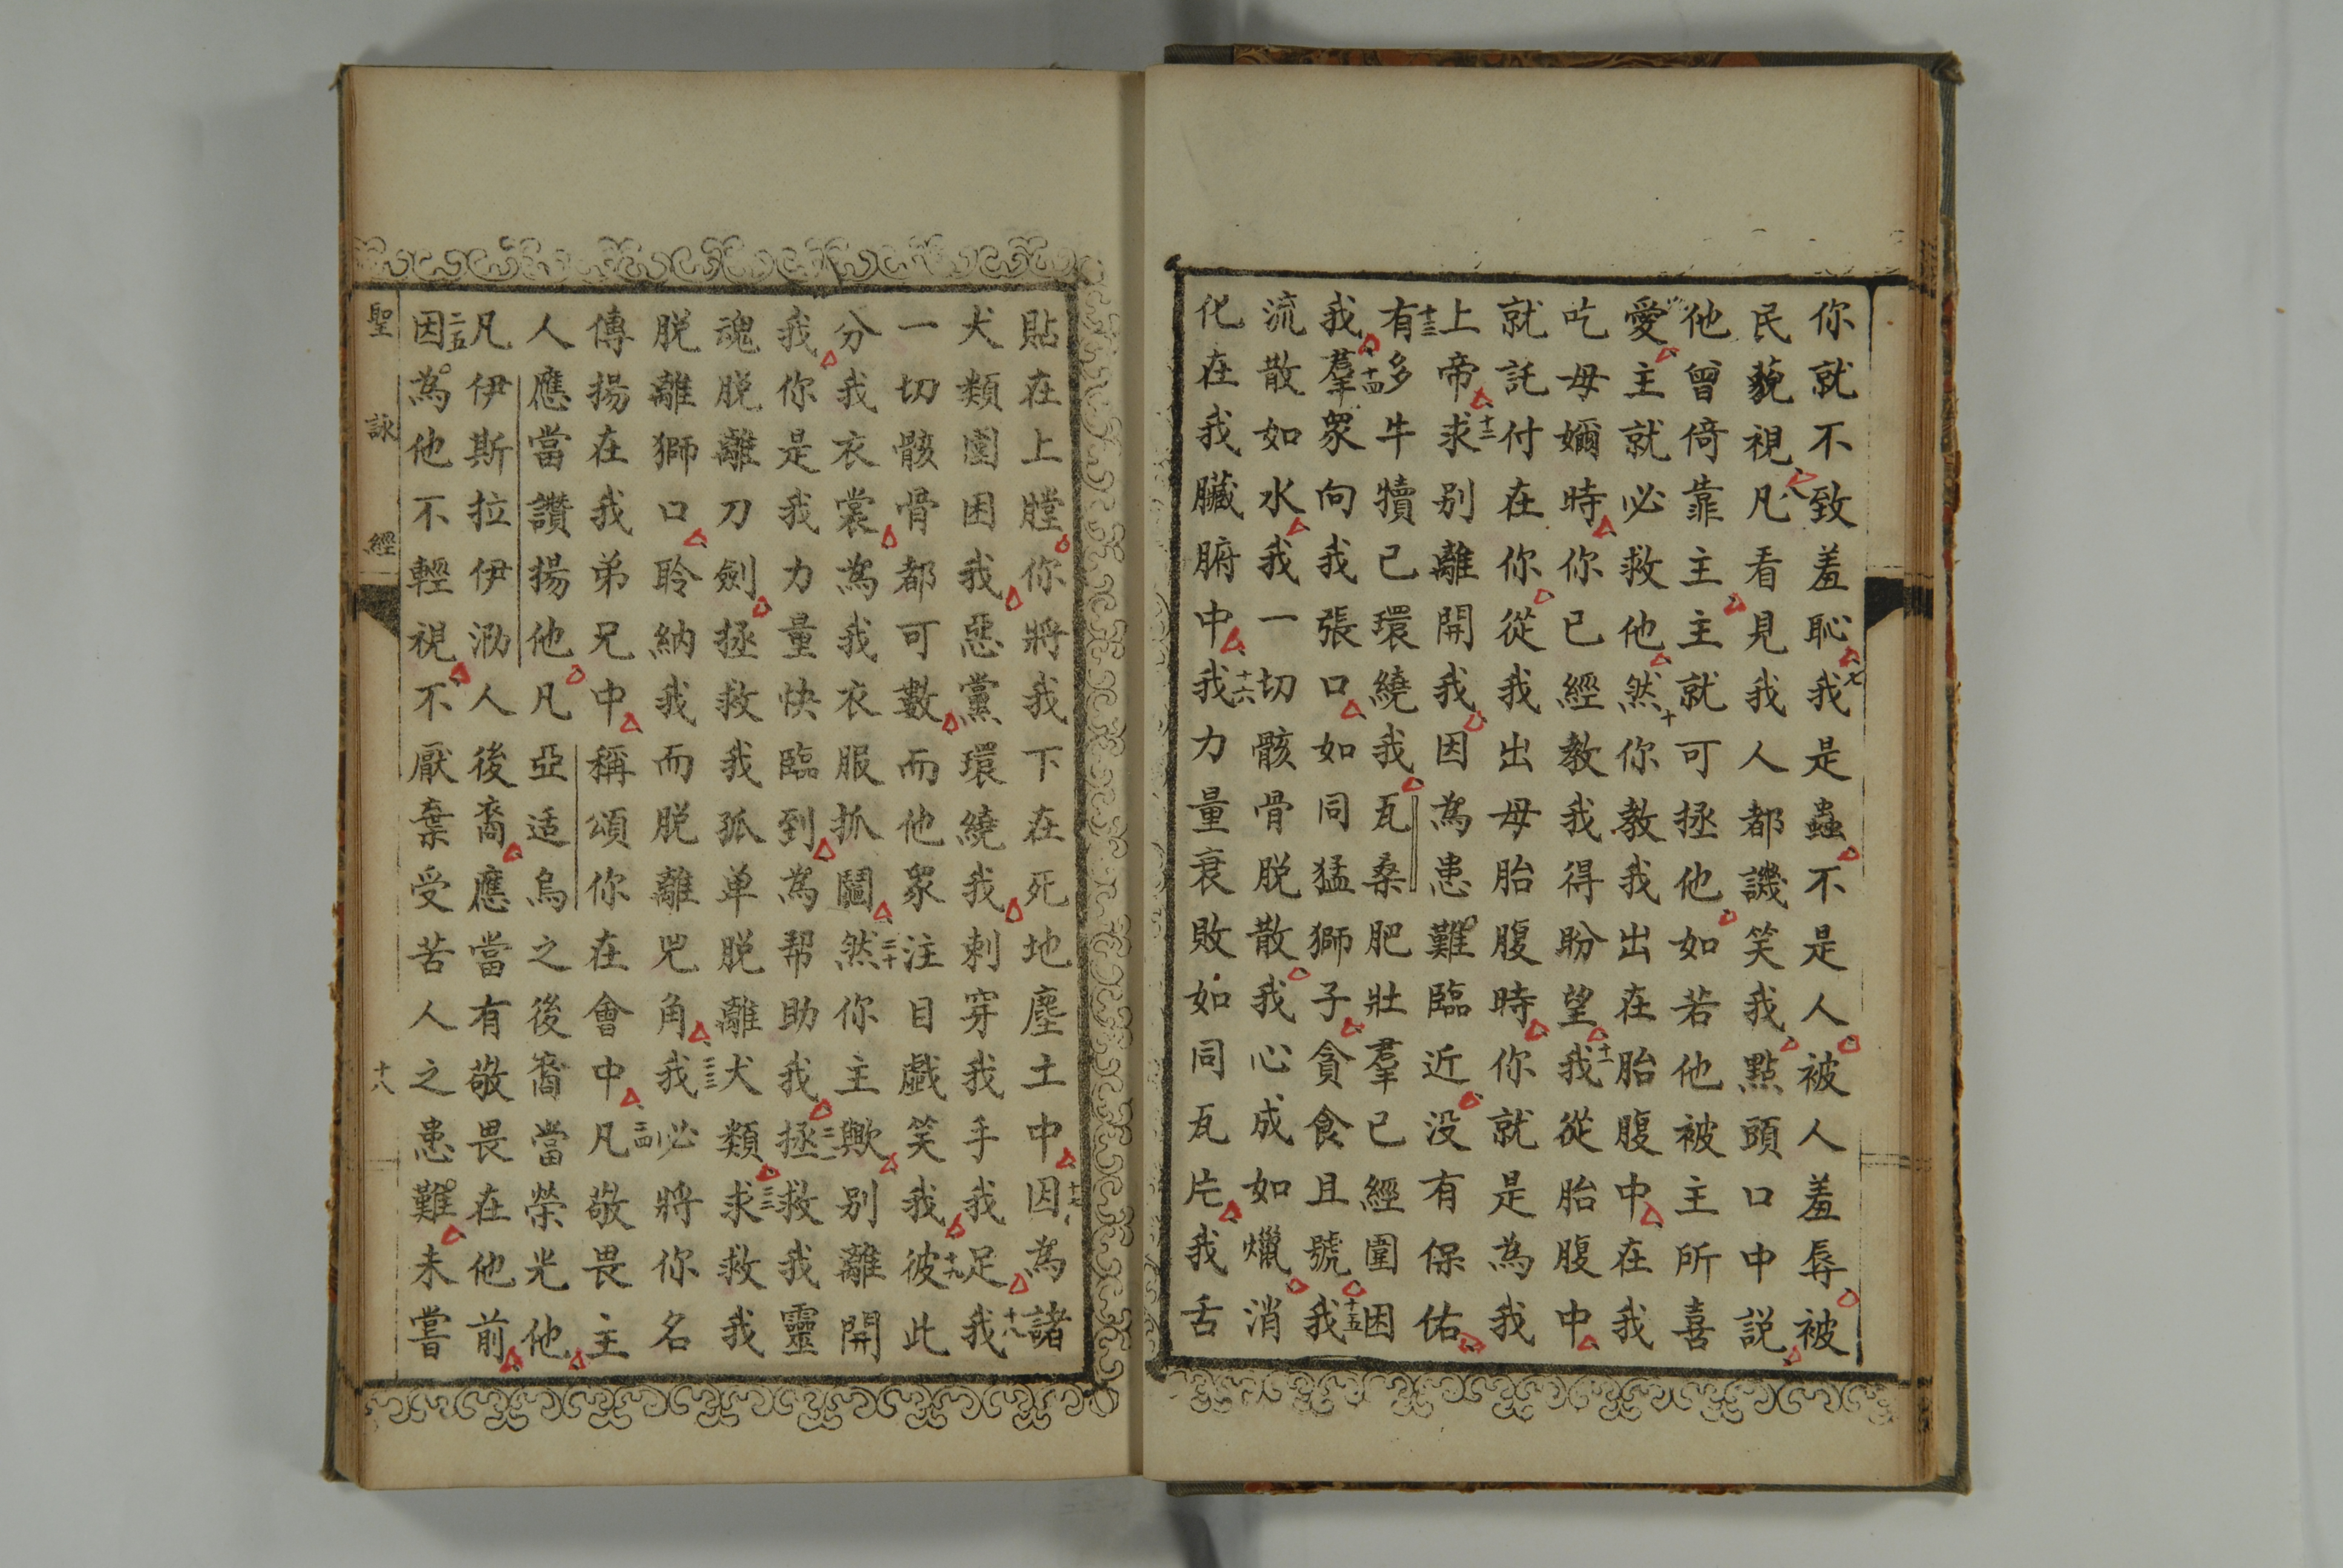 你就不致羞恥七我是蟲不是人被人羞辱被
民藐視八凡看見我人都譏笑我點頭口中説
他曾倚靠主主就可拯他如若他被主所喜
愛主就必救他十然你教我出在胎腹中在我
吃母嬭時你已經教我得盼望十一我從胎腹中
就託付在你從我出母胎腹時你就是為我
上帝十二求别離開我因為患難臨近没有保佑
十三有多牛犢已環繞我瓦桑肥壯羣已經圍困
我十四羣眾向我張口如同猛獅子貪食且號十五我
流散如水我一切骸骨脱散我心成如爉消
化在我臟腑中十六我力量衰敗如同瓦片我舌
貼在上膛你將我下在死地塵土中十七因為諸
犬類圍困我惡黨環繞我刺穿我手我足十八我
一切骸骨都可數而他眾注目戲笑我十九彼此
分我衣裳為我衣服抓鬮二十然你主歟别離開
我你是我力量快臨到為帮助我二一拯救我靈
魂脱離刀劍拯救我孤单脱離犬類二二求救我
脱離獅口聆納我而脱離兕角二三我必將你名
傳揚在我弟兄中稱頌你在會中二四凡敬畏主
人應當讚揚他凡亞适烏之後裔當榮光他
凡伊斯拉伊泐人後裔應當有敬畏在他前
二五因為他不輕視不厭棄受苦人之患難未嘗
聖詠經
十八